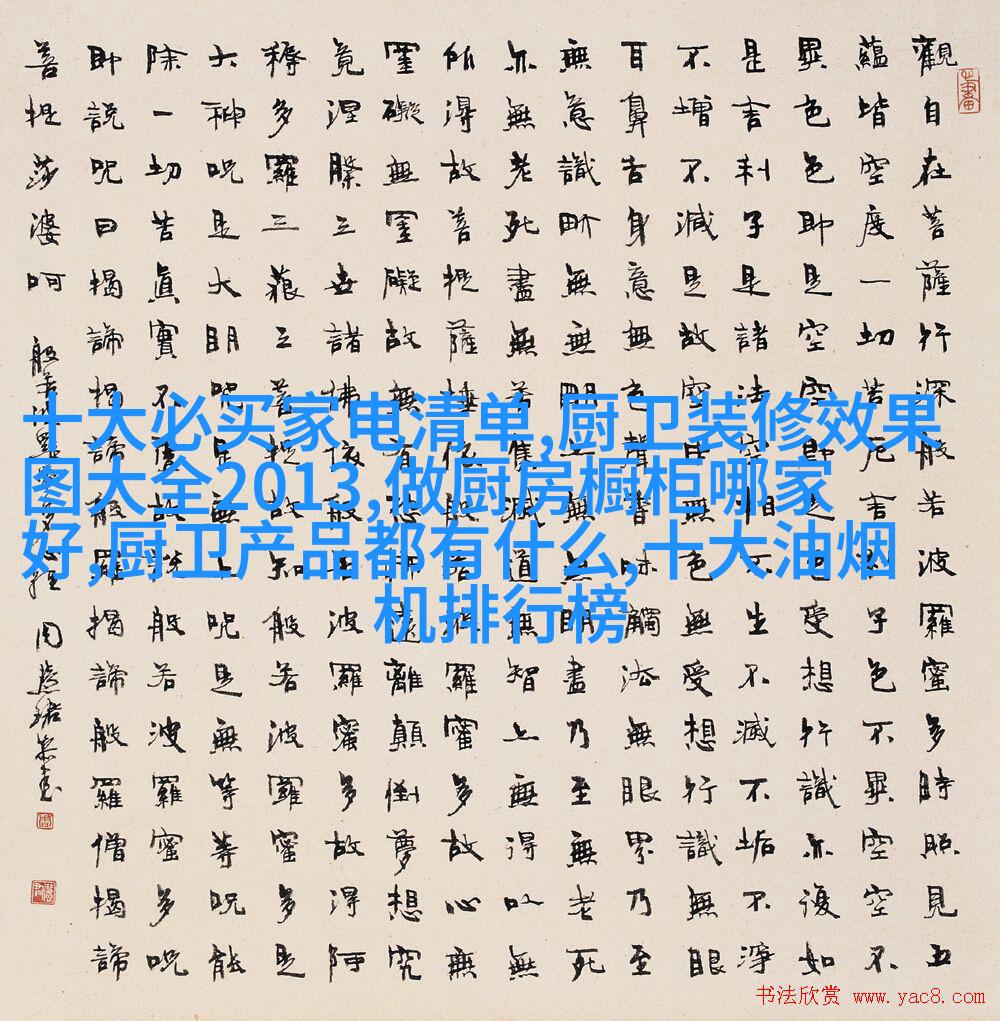 觀自在菩薩行深般若波羅蜜多時照見五
蘊皆空度一切苦厄舍利子色不異空空不
異色色即是空空即是色受想行識亦復如
是舍利子是諸法空相不生不滅不垢不淨
不增不減是故空中無色無受想行識無眼
耳鼻舌身意無色聲香味觸法無眼界乃至
無意識界無無明亦無無明盡乃至無老死
亦無老死盡無苦集滅道無智亦無得以無
所得故菩提薩埵依般若波羅蜜多故心無
罣礙無罣礙故無有恐怖遠離顛倒夢想究
竟涅槃三世諸佛依般若波羅蜜多故得阿
耨多羅三藐三菩提故知般若波羅蜜多是
大神咒是大明咒是無上咒是無等等咒能
除一切苦真實不虛故說般若波羅蜜多咒
即說咒曰揭諦揭諦般羅揭諦般羅僧揭諦
菩提莎婆呵
般若波羅蜜多心經 周慧珺恭書
十大必买家电清单,厨卫装修效果
图大全2013,做厨房橱柜哪家
好,厨卫产品都有什么,十大油烟
机排行榜
书法欣赏 www.yac8.com